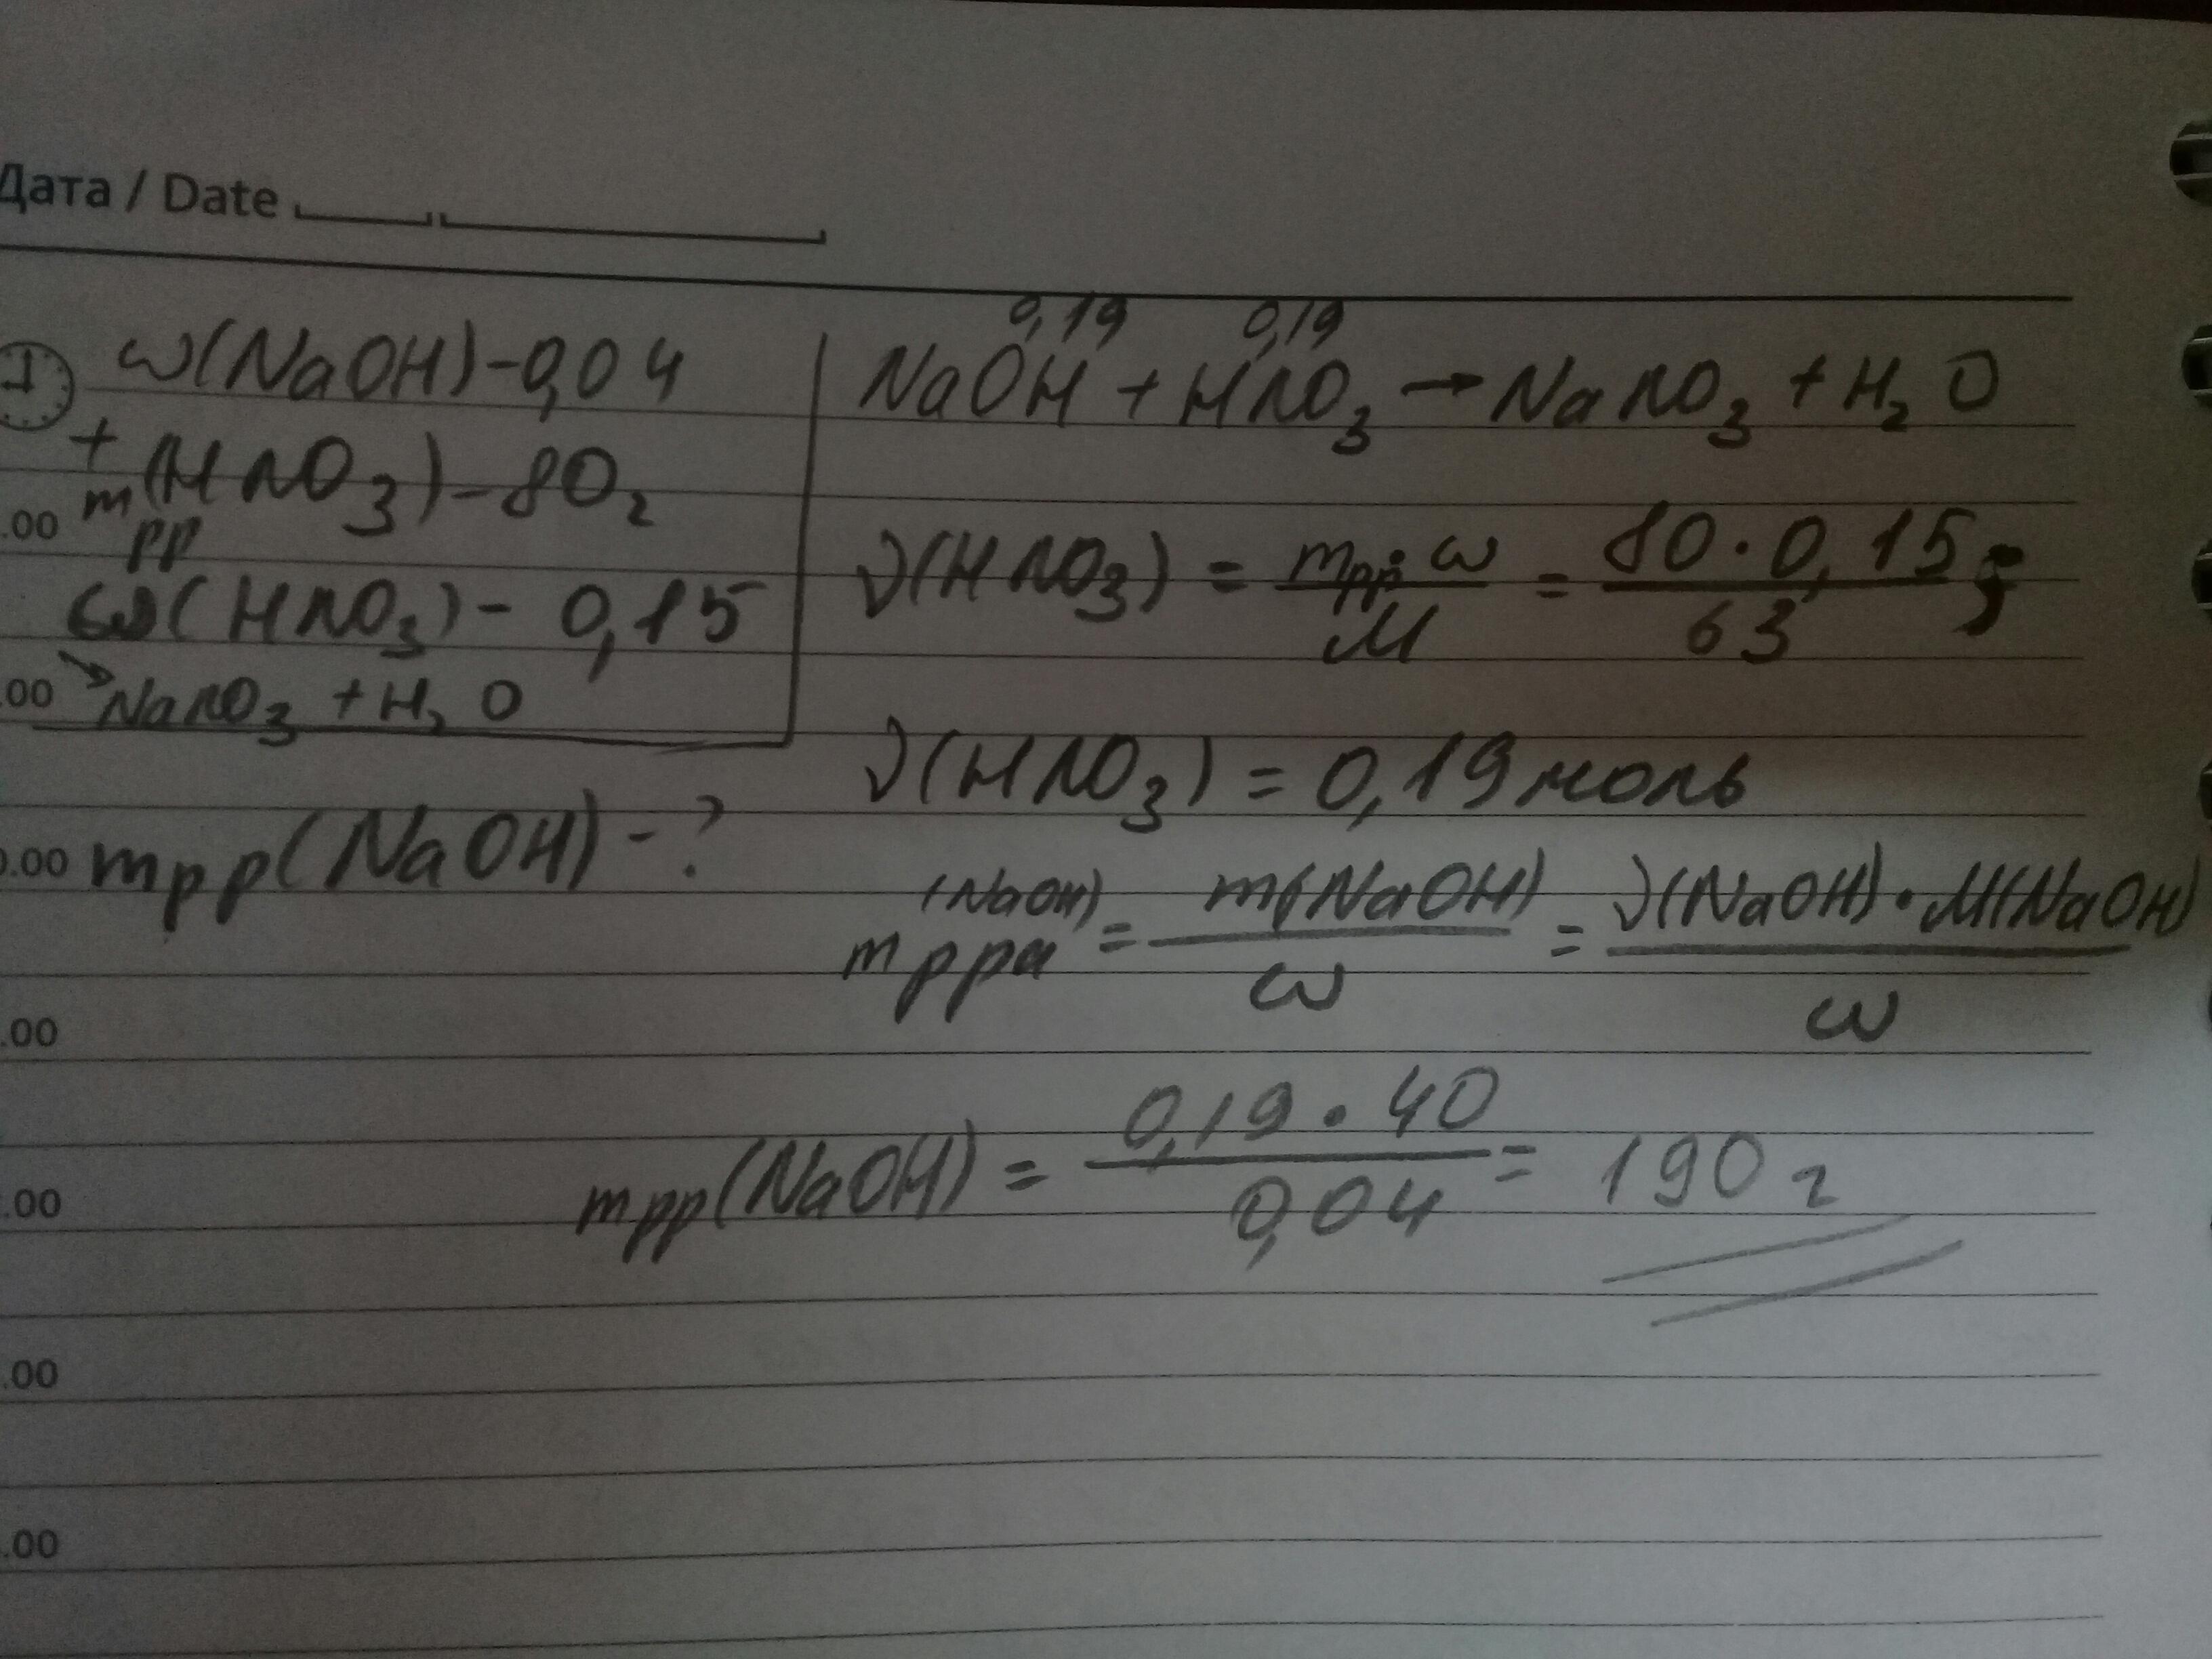 Дата / Date
ω(NaOH)-0,04
+
mpp(HNO3)-80г
ω(HNO3)-0,15
→NaNO3+H2O
mpp(NaOH)-?
0,19 0,19
NaOH+HNO3→NaNO3+H2O
ν(HNO3)=mpp·ω/M=80·0,15/63;
ν(HNO3)=0,19моль
mрра(NaOH)=m(NaOH)/ω=ν(NaOH)·M(NaOH)/ω
mpp(NaOH)=0,19·40/0,04=190г
.00
.00
0.00
.00
.00
.00
.00